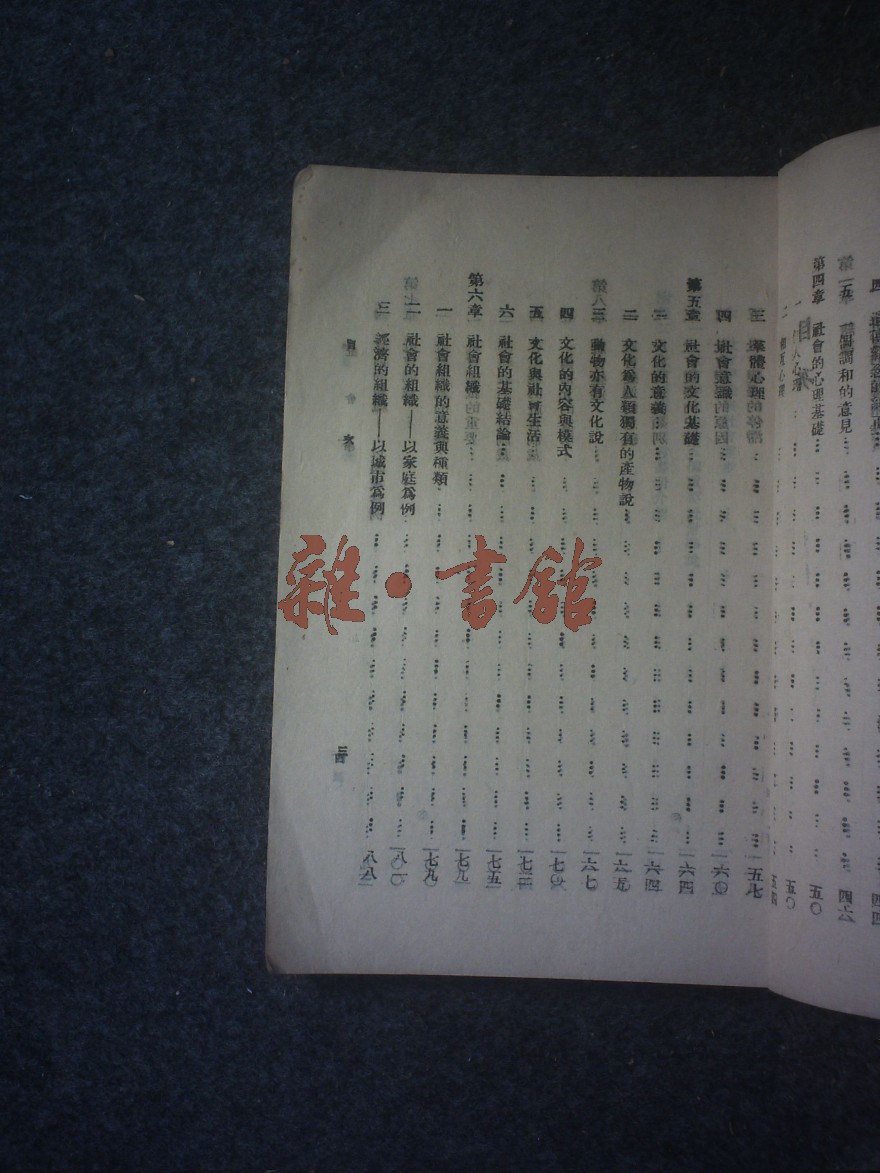 五 一個調和的意見 …… 四六
第四章 社會的心理基礎 …… 五〇
一 個人心理 …… 五〇
三 羣體心理 …… 五七
四 社會意識 …… 六〇
第五章 社會的文化基礎 …… 六四
一 文化的意義 …… 六四
二 文化爲人類獨有的產物說 …… 六五
三 動物亦有文化說 …… 六七
四 文化的內容與模式 …… 七〇
五 文化與社會生活 …… 七三
六 社會的基礎結論 …… 七五
第六章 社會組織 …… 七九
一 社會組織的意義與種類 …… 七九
二 社會的組織——以家庭爲例 …… 八一
三 經濟的組織——以城市爲例 …… 八八
目 次
三
雜·書館